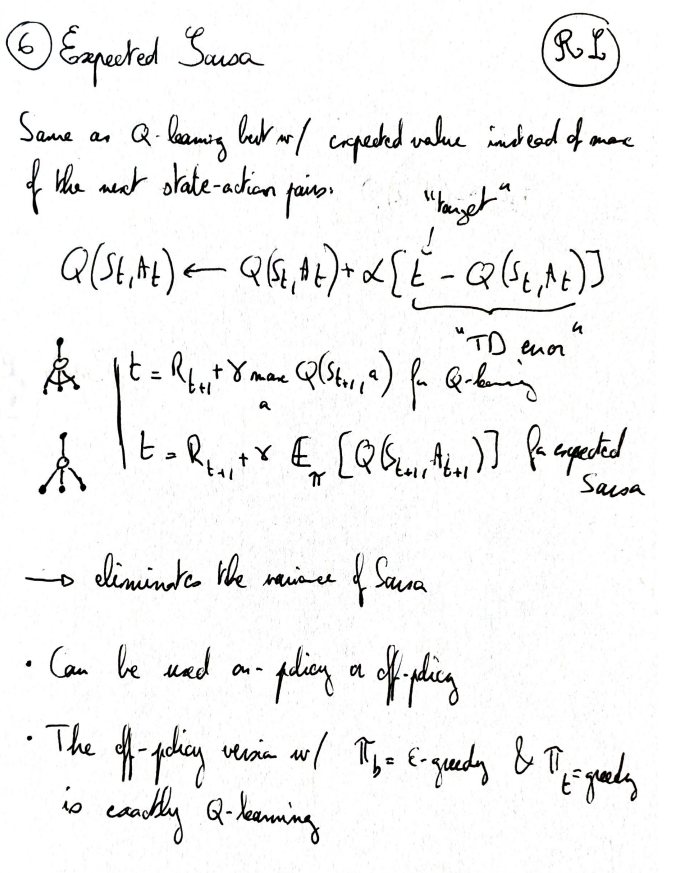 6 Expected Sarsa
RL
Same as Q-learning but w/ expected value instead of max
of the next state-action pairs.
"target"
Q(St, At) ← Q(St, At) + α[t - Q(St, At)]
"TD error"
t = Rt+1 + γ max Q(St+1, a) for Q-learning
a
t = Rt+1 + γ Eπ [Q(St+1, At+1)] for expected
Sarsa
→ eliminates the variance of Sarsa
• Can be used on-policy or off-policy
• The off-policy version w/ πb = ε-greedy & πt = greedy
is exactly Q-learning